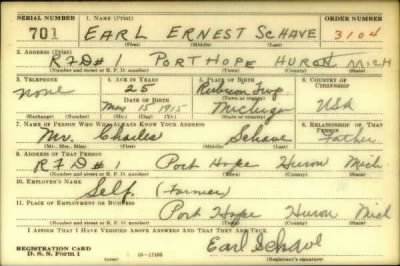 SERIAL NUMBER 1. NAME (Print) ORDER NUMBER
701 EARL ERNEST SCHAVE 3104
(First) (Middle) (Last)
2. ADDRESS (Print)
R F D # 1 PORT HOPE HURON MICH
(Number and street or R. F. D. number) (Town) (County) (State)
3. TELEPHONE 4. AGE IN YEARS 5. PLACE OF BIRTH 6. COUNTRY OF CITIZENSHIP
None 25 Rubicon Twp.
(Town or county)
DATE OF BIRTH
May 15 1915 Michigan USA
(Exchange) (Number) (Mo.) (Day) (Yr.) (State or country)
7. NAME OF PERSON WHO WILL ALWAYS KNOW YOUR ADDRESS 8. RELATIONSHIP OF THAT PERSON
Mr. Charles Schave Father
(Mr., Mrs., Miss) (First) (Middle) (Last)
9. ADDRESS OF THAT PERSON
R F D # 1 Port Hope Huron Mich.
(Number and street or R. F. D. number) (Town) (County) (State)
10. EMPLOYER'S NAME
Self (Farmer)
11. PLACE OF EMPLOYMENT OR BUSINESS
Port Hope Huron Mich
(Number and street or R. F. D. number) (Town) (County) (State)
I AFFIRM THAT I HAVE VERIFIED ABOVE ANSWERS AND THAT THEY ARE TRUE.
REGISTRATION CARD
D. S. S. Form 1 16-17105 Earl Schave
(Registrant's signature)